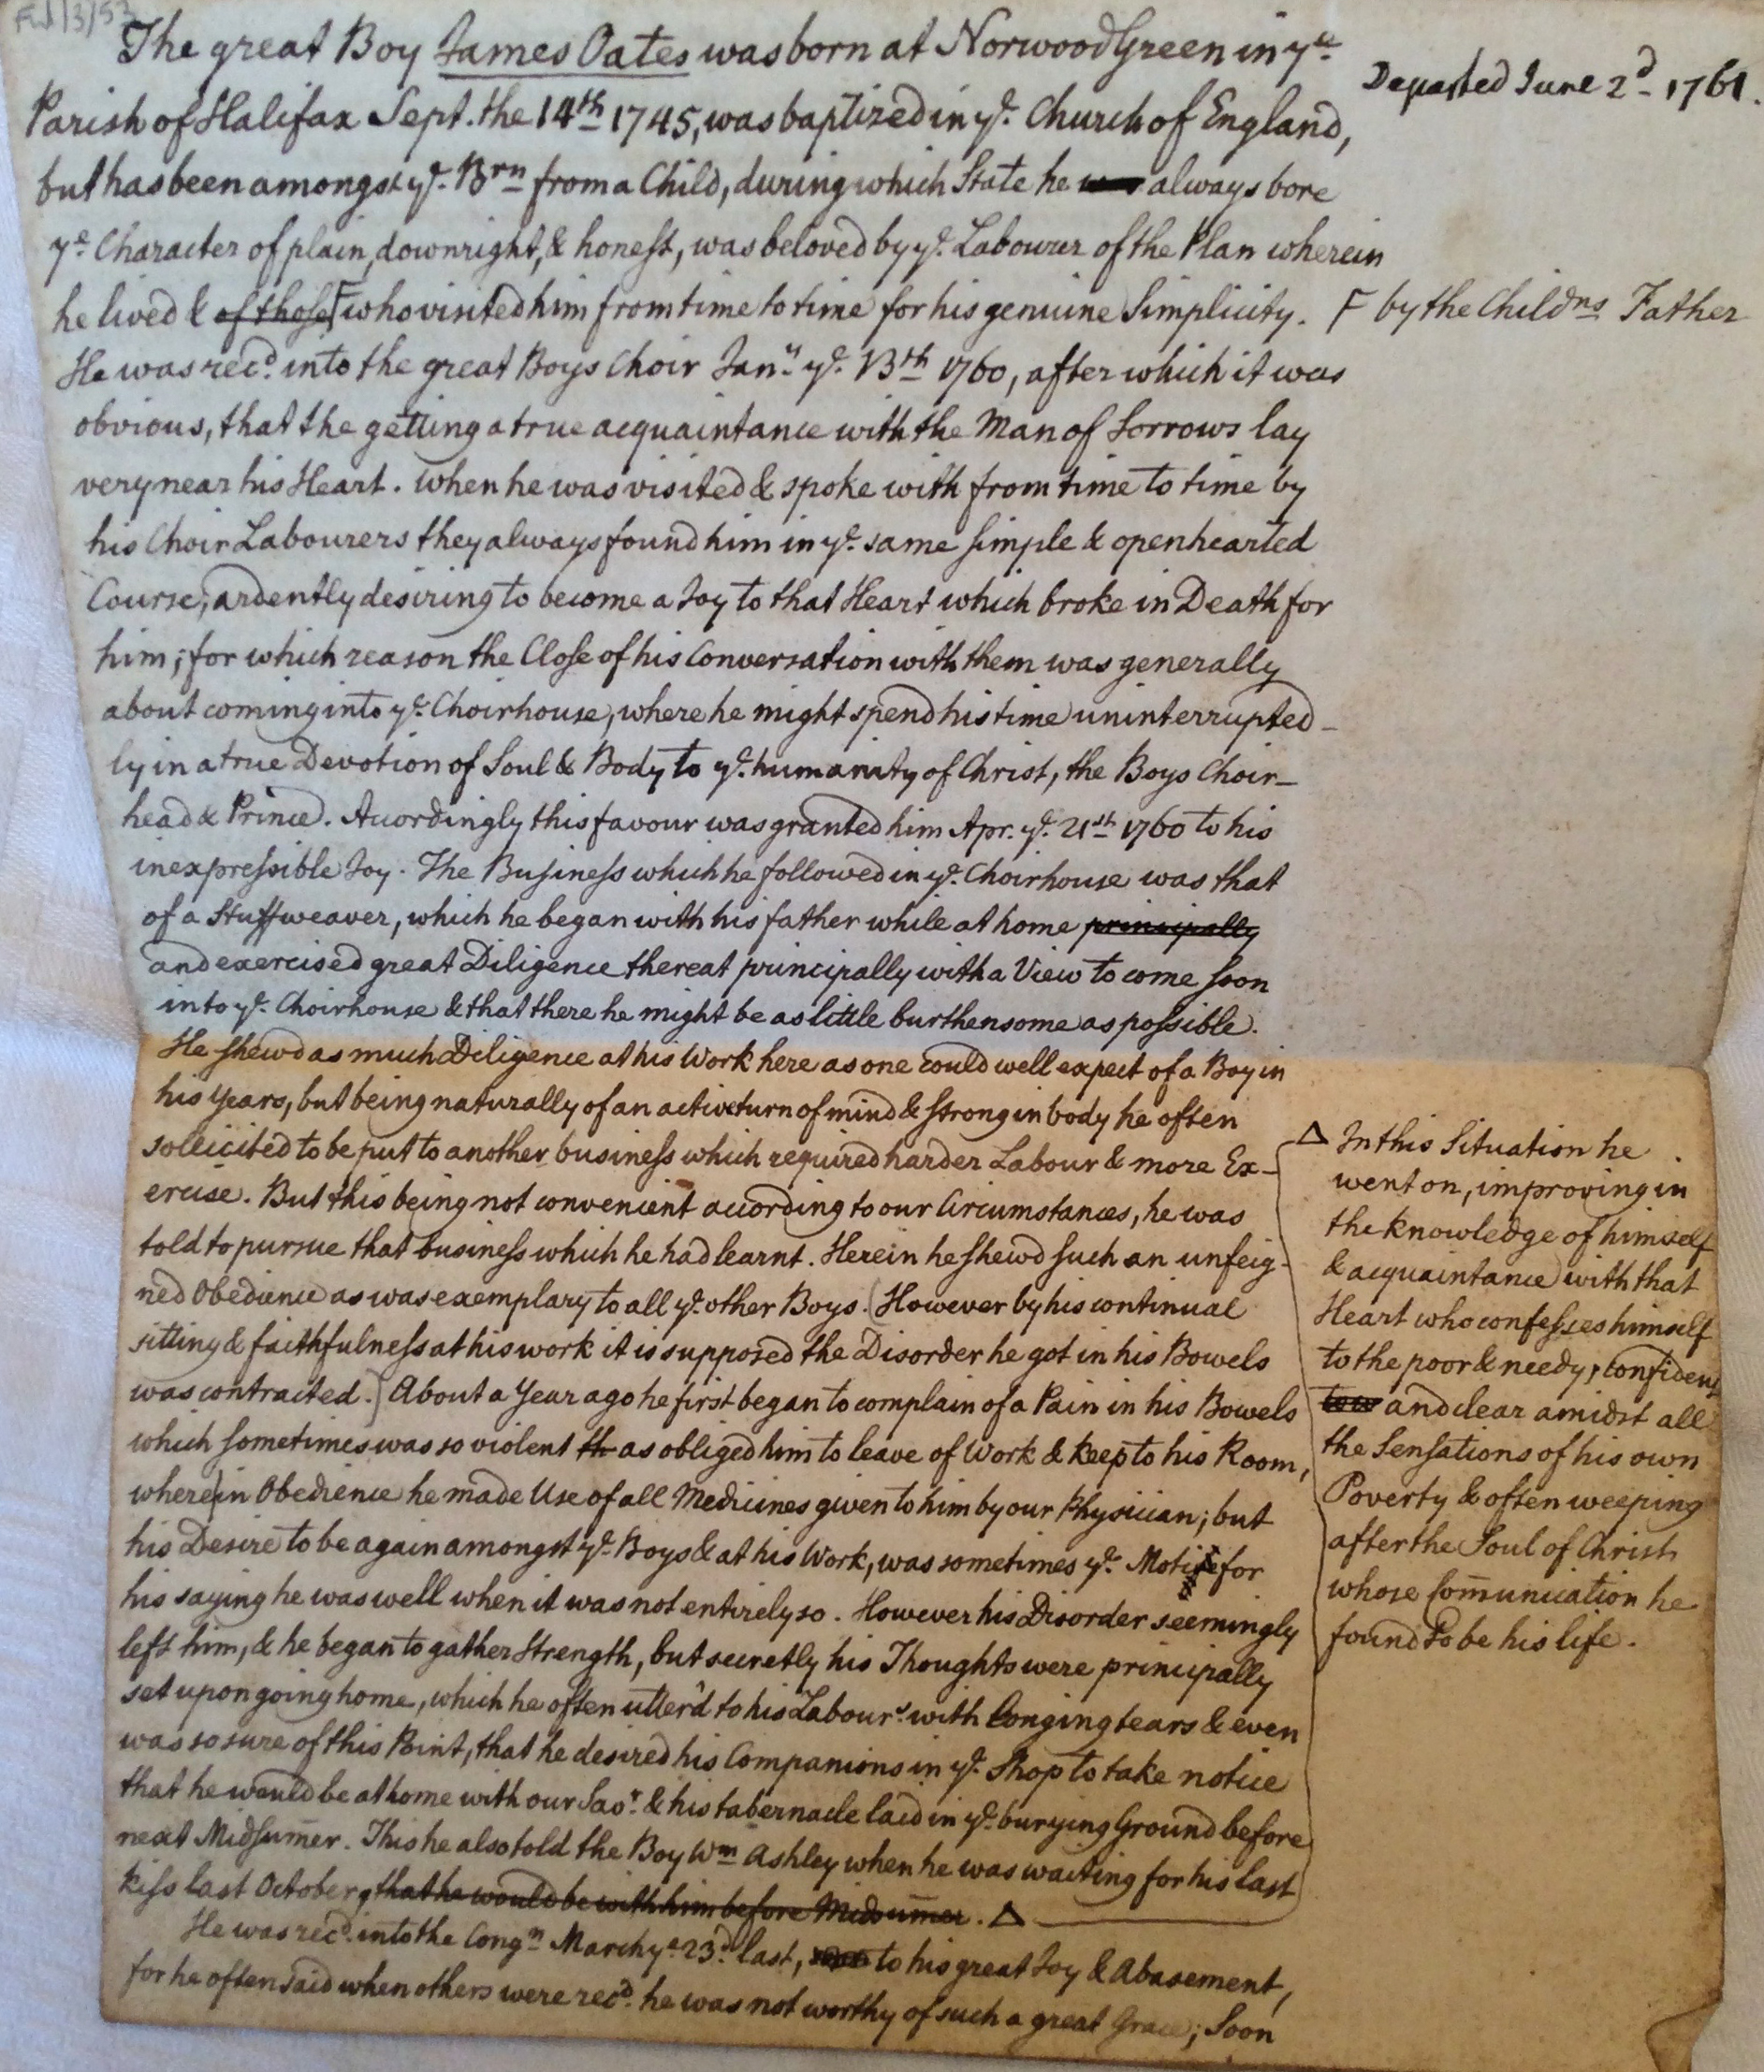 The great Boy James Oates was born at Norwood Green in ye
Departed June 2d 1761.
Parish of Halifax Sept. the 14th 1745, was baptized in ye Church of England,
but has been amongst ye Brn from a Child, during which State he was always bore
ye Character of plain, downright, & honest, was beloved by ye Labourer of the Plan wherein
he lived & of those F who visited him from time to time for his genuine Simplicity.
F by the Childns Father
He was recd into the great Boys Choir Jany ye 13th 1760, after which it was
obvious, that the getting a true acquaintance with the Man of Sorrows lay
very near his Heart. When he was visited & spoke with from time to time by
his Choir Labourers they always found him in ye same simple & openhearted
Course, ardently desiring to become a Joy to that Heart which broke in Death for
him; for which reason the Close of his Conversation with them was generally
about coming into ye Choirhouse, where he might spend his time uninterrupted-
ly in a true Devotion of Soul & Body to ye humanity of Christ, the Boys Choir-
head & Prince. Accordingly this favour was granted him Apr. ye 21st 1760 to his
inexpressible Joy. The Business which he followed in ye Choirhouse was that
of a Stuffweaver, which he began with his father while at home principally
and exercised great Diligence thereat principally with a View to come soon
into ye Choirhouse & that there he might be as little burthensome as possible.
He shewd as much Diligence at his Work here as one could well expect of a Boy in
his Years, but being naturally of an active turn of mind & strong in body he often
sollicited to be put to another business which required harder Labour & more Ex-
ercise. But this being not convenient according to our Circumstances, he was
told to pursue that business which he had learnt. Herein he shewd such an unfeig-
ned Obedience as was exemplary to all ye other Boys. (However by his continual
sitting & faithfulness at his work it is supposed the Disorder he got in his Bowels
was contracted.) About a Year ago he first began to complain of a Pain in his Bowels
which sometimes was so violent th as obliged him to leave of Work & keep to his Room,
where in Obedience he made Use of all Medicines given to him by our Physician; but
his Desire to be again amongst ye Boys & at his Work, was sometimes ye Motive for
his saying he was well when it was not entirely so. However his Disorder seemingly
left him, & he began to gather Strength, but secretly his Thoughts were principally
set upon going home, which he often utter'd to his Labourr with longing tears & even
was so sure of this Point, that he desired his Companions in ye Shop to take notice
that he would be at home with our Savr & his tabernacle laid in ye burying Ground before
next Midsum̄er. This he also told the Boy Wm Ashley when he was waiting for his last
kiss last October, that he would be with him before Midsum̄er. Δ
He was recd into the Congn March ye 23d last, to his great Joy & Abasement,
for he often said when others were recd he was not worthy of such a great Grace; Soon
Δ In this Situation he
went on, improving in
the knowledge of himself
& acquaintance with that
Heart who confesses himself
to the poor & needy, confident
and clear amidst all
the Sensations of his own
Poverty & often weeping
after the Soul of Christ
whose Com̄unication he
found to be his life.